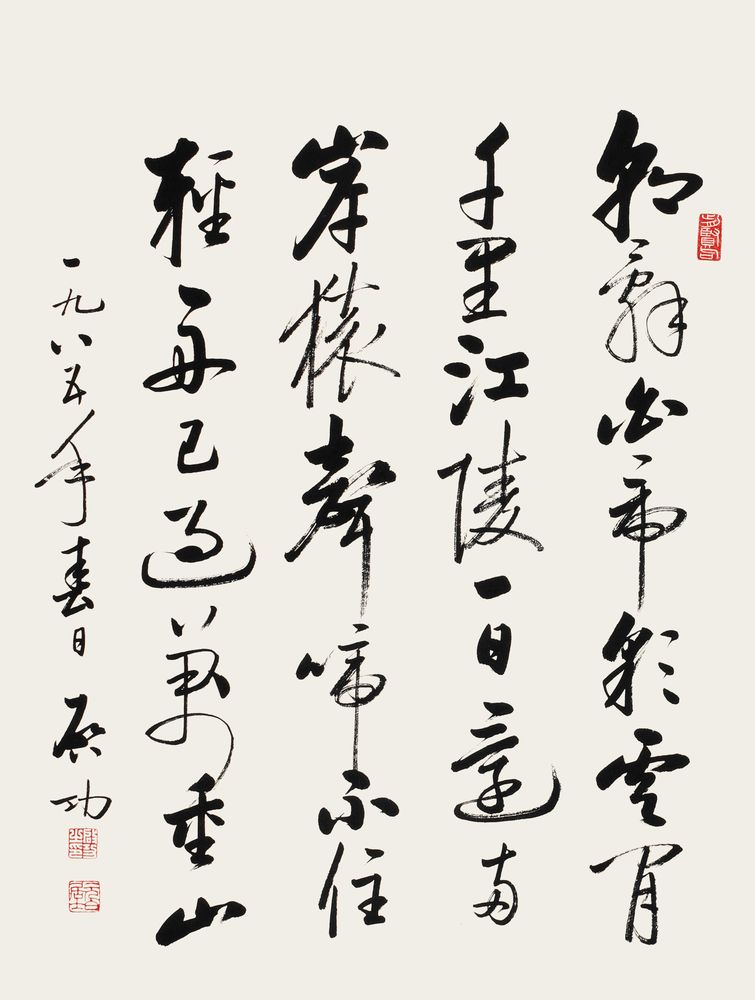 朝辭白帝彩雲間
千里江陵一日還兩
岸猿聲啼不住
輕舟已過萬重山
一九八五年春日 启功